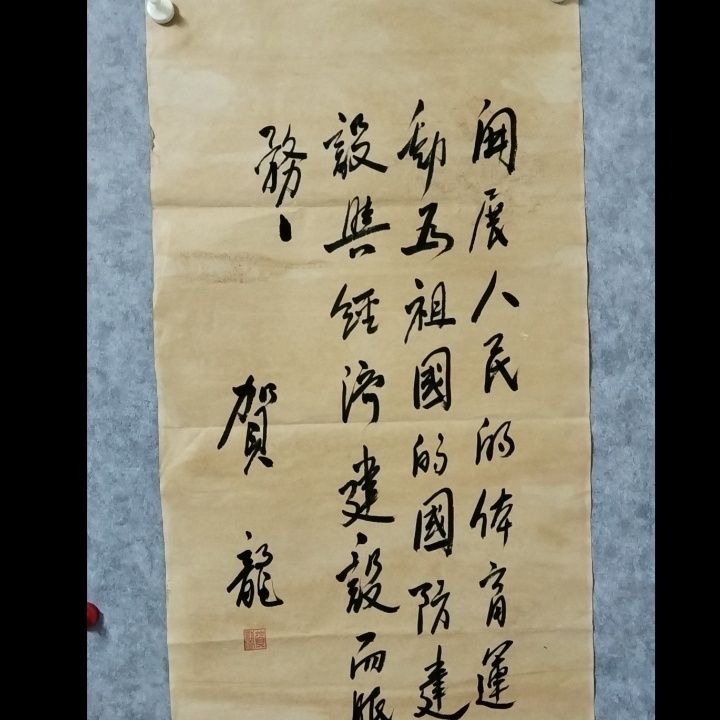 開展人民的体育運
動為祖國的國防建
設與經濟建設而服
務、
賀龍